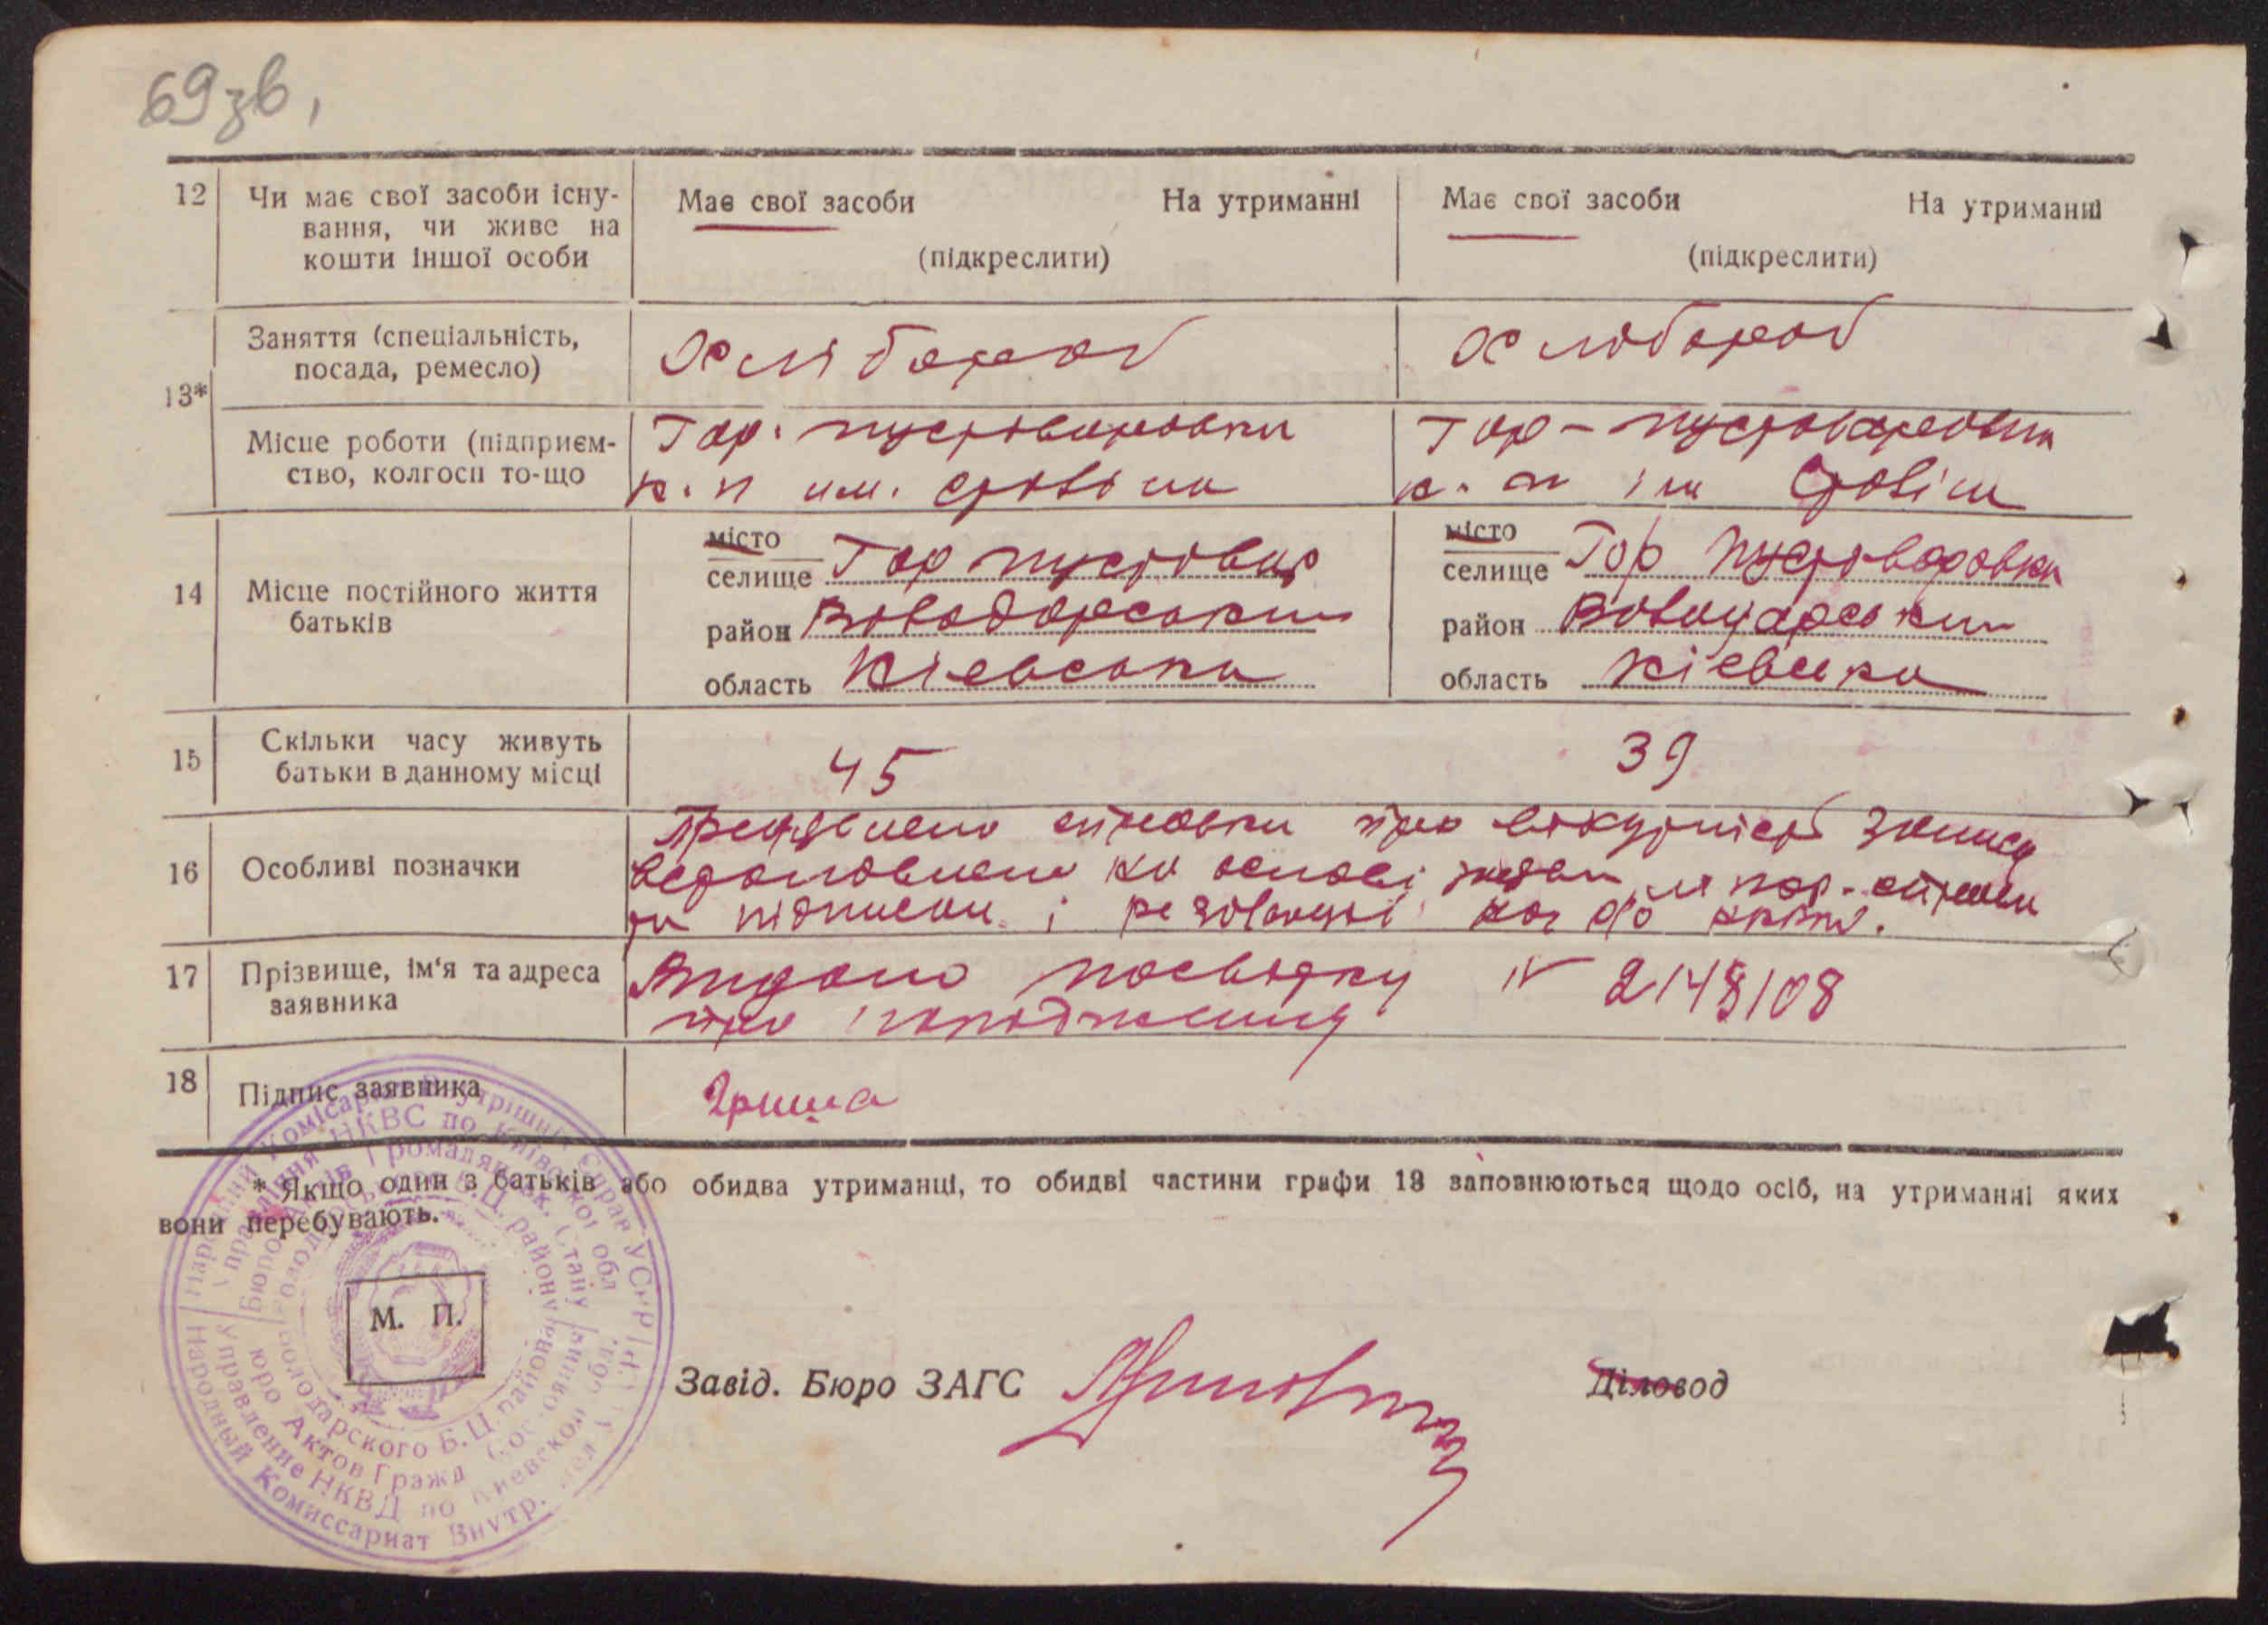 69 зв,
12 Чи має свої засоби існу- Має свої засоби На утриманні Має свої засоби На утриманні
вання, чи живе на
кошти іншої особи (підкреслити) (підкреслити)
Заняття (спеціальність, Хлібороб Хлібороб
посада, ремесло)
13*
Місце роботи (підприєм- Гор. пустоваровка Гор-пустоваровка
ство, колгосп то-що к.п им. к. п ім
місто місто
селище Гор пустовар селище Гор Пустоваровка
14 Місце постійного життя
батьків район Володарський район Володарський
область Кієвська область Кієвська
15 Скільки часу живуть 45 39
батьки в данному місці
справки про відсутність запису
16 Особливі позначки на основі
підписки і резолюції
17 Прізвище, ім'я та адреса Видано посвідку № 2148108
заявника про народження
18 Підпис заявника Гриша
* Якщо один з батьків або обидва утриманці, то обидві частини графи 13 заповнюються щодо осіб, на утриманні яких
вони перебувають.
М. П.
Завід. Бюро ЗАГС Діловод
Народний Комісаріат Внутрішніх Справ УСРР
Управління НКВС по Київської обл
Володарского Б.Ц. района
Бюро Актов Гражд. Состояния
Управление НКВД по Киевской обл.
Народный Комиссариат Внутр. Дел